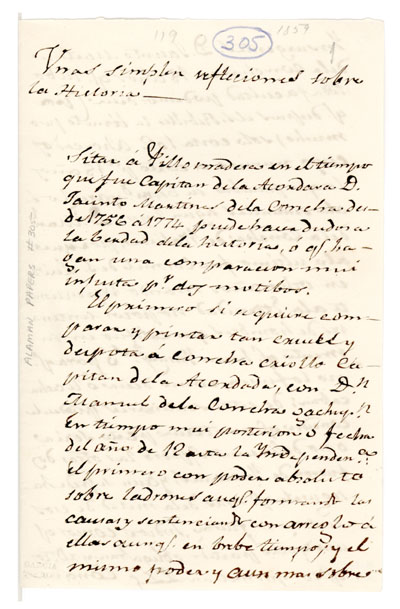 119
305
1859
Unas simples reflecciones sobre
la Historia
Sitar á Villamadera en el tiempo
que fue Capitan de la Acordara D.
Jacinto Martines de la Concha des-
de 1756 á 1774 puede hacer dudora
la berdad de la historia, ó qe. ha-
gan una comparacion mui
injusta pr. dos motibos.
El primero si se quiere com-
parar y pintar tan cruel y
despota á Concha criollo Ca-
pitan de la Acordada, con Dn.
Manuel de la Concha Gachupn.
En tiempo mui posterior ó fecha
del año de 12 asta la Independena.
El primero con poder absoluto
sobre ladrones aunqe. formando las
causas y sentenciando con arreglo á
ellas aunqe. en brebe tiempo, y el
mismo poder y aun mas sobre
ALAMAN PAPERS # 305